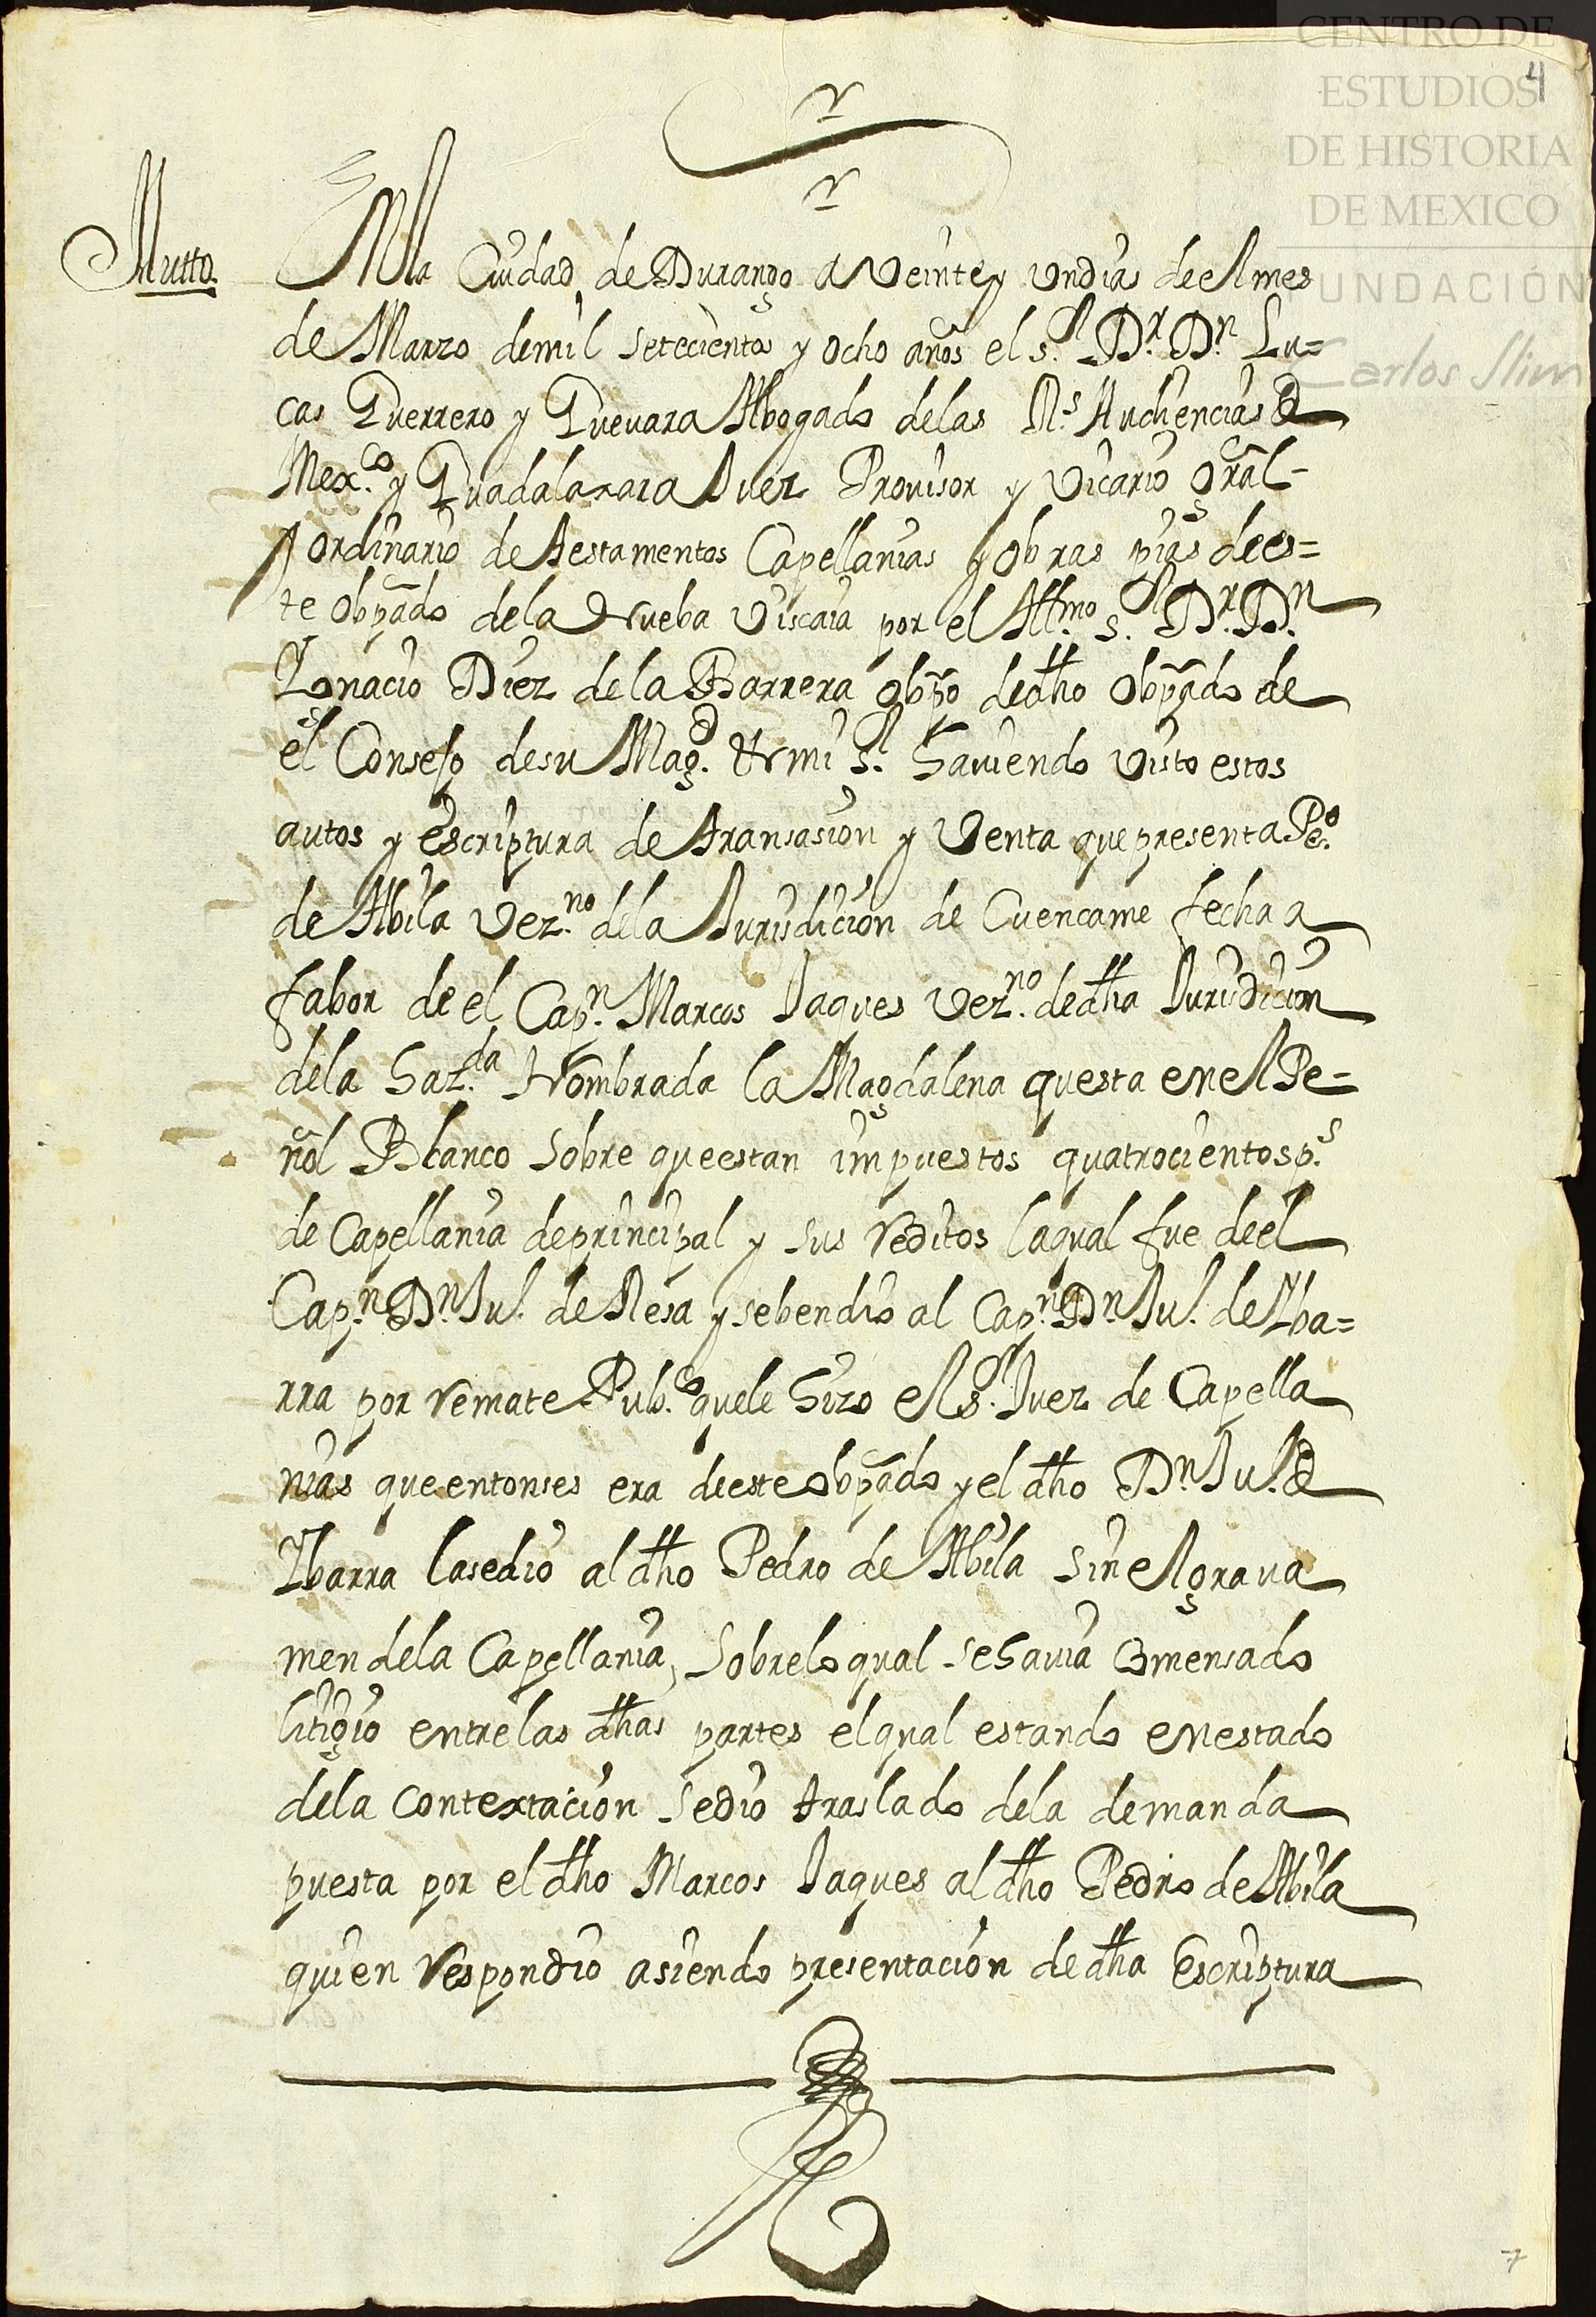 CENTRO DE
ESTUDIOS
DE HISTORIA
DE MEXICO
FUNDACIÓN
Carlos Slim
4
Autto.
En la Ciudad de Durango a Veinte y Un dias de el mes
de Marzo de mil setecientos y ocho años el s.r D.r D.n Lu=
cas Guerrero y Guevara Abogado de las R.s Audiencias de
Mex.co y Guadalaxara Juez Provisor y Vicario Gral
Ordinario de testamentos Capellanias y obras pias de es=
te obpado de la Nueba Viscaia por el Ill.mo s.r D.r D.n
Ignacio Diez de la Barrera obpo de dho Obpado de
el Consejo de su Mag.d & mi s.r haviendo visto estos
autos y escriptura de transasion y Venta que presenta P.o
de Abila Vez.no de la Jurisdicion de Cuencame fecha a
fabor de el Cap.n Marcos Jaques Vez.no de dha Jurisdicion
de la haz.da Nombrada la Magdalena questa en el Pe=
ñol Blanco sobre que estan impuestos quatrocientos p.s
de Capellania de principal y sus reditos la qual fue de el
Cap.n D.n Ju.o de Mesa y se bendio al Cap.n D.n Ju.o de Yba=
rra por remate Pub.co que le hizo el s.r Juez de Capella
nias que entonses era de este obpado y el dho D.n Ju.o de
Ybarra la sedio al dho Pedro de Abila sin el grava
men de la Capellania, sobre lo qual se havia Comensado
litigio entre las dhas partes el qual estando en estado
de la contextacion se dio traslado de la demanda
puesta por el dho Marcos Jaques al dho Pedro de Abila
quien respondio asiendo presentacion de dha Escriptura
7